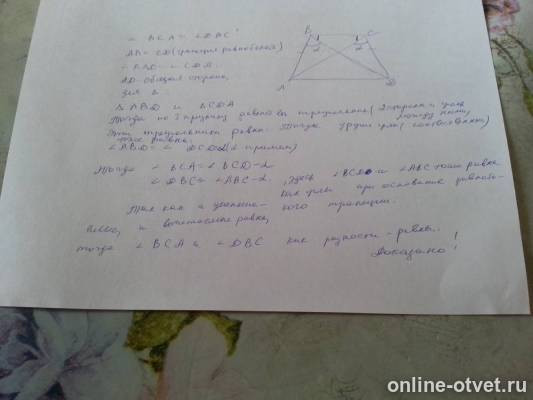 ∠BCA = ∠DBC
AB = CD (трапеция равнобокая)
∠BAD = ∠CDA
AD - общая сторона
для Δ
B C
α α
A D
ΔABD и ΔCDA
Тогда по 1 признаку равенства треугольники (2 стороны и угол между ними)
Эти треугольники равны. Тогда другие углы (соответственные)
тоже равны.
∠ABD = ∠DCA (α примем)
Тогда ∠BCA = ∠BCD - α
∠DBC = ∠ABC - α, здесь ∠BCD и ∠ABC тоже равны
как углы при основание равнобо-
кого трапеции.
Так как и уменьшае-
мые, и вычитаемые равны,
тогда ∠BCA и ∠DBC как разности - равны.
Доказано!
online-otvet.ru